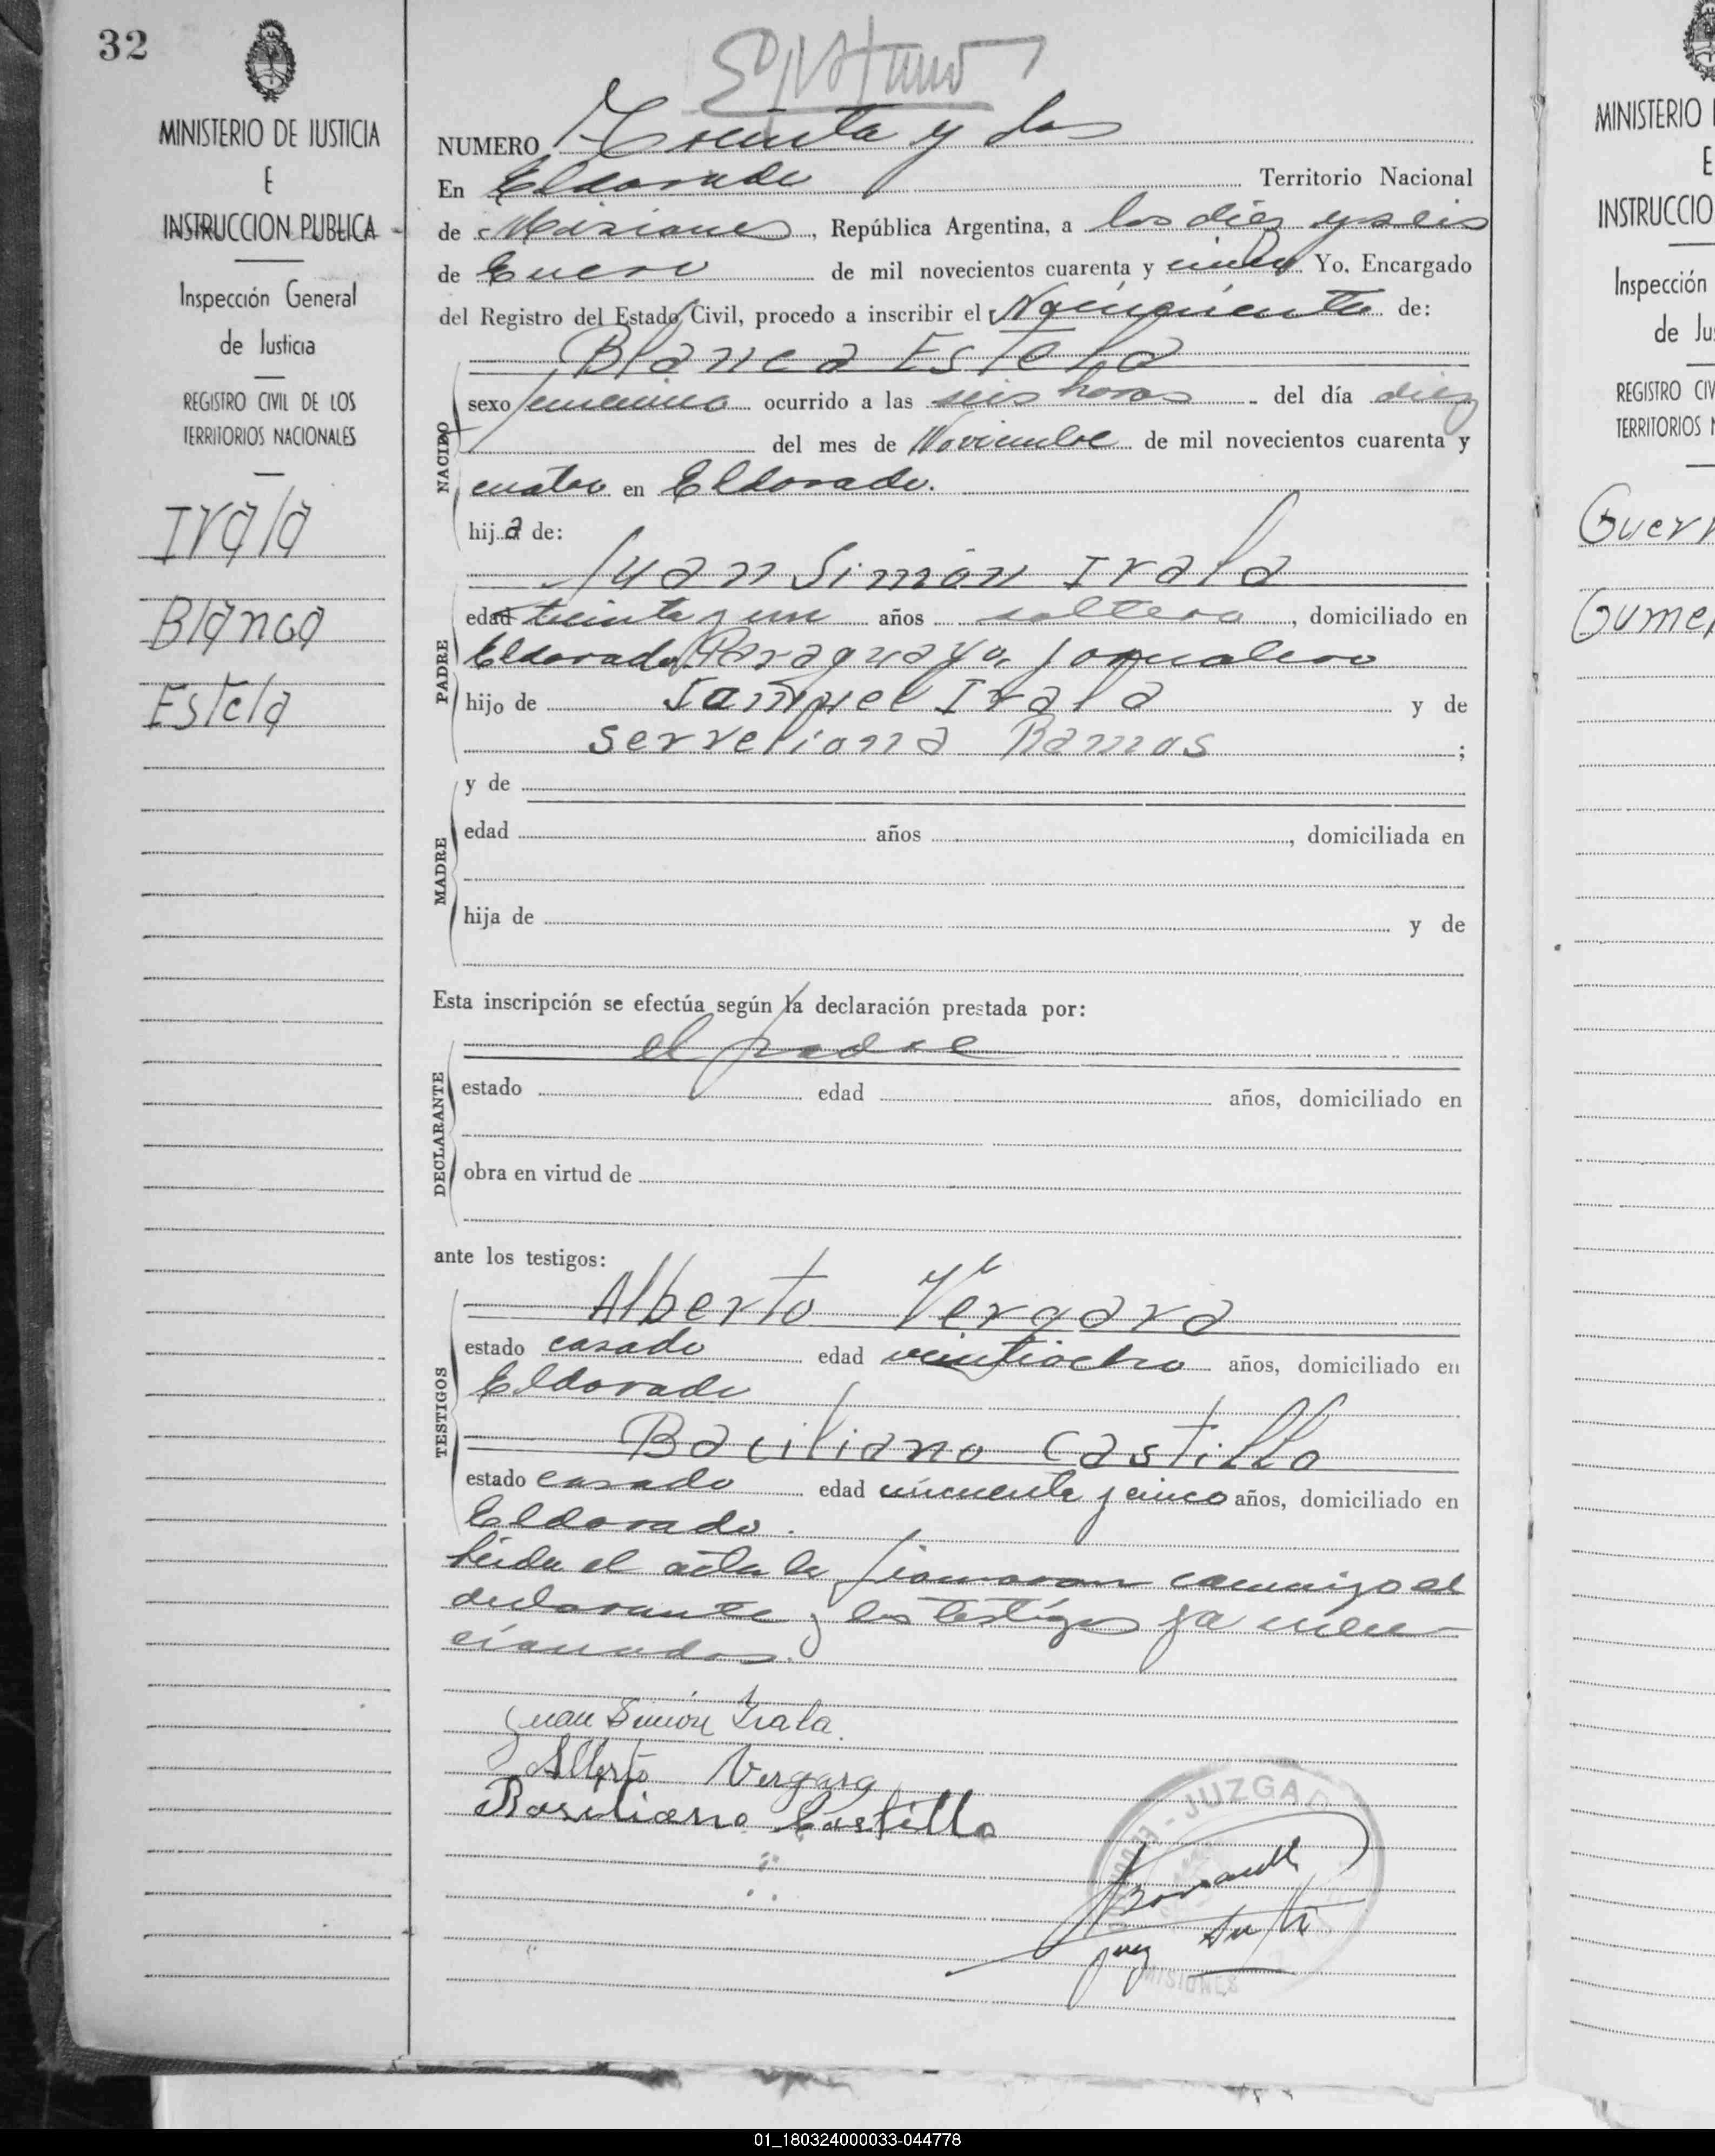 32
MINISTERIO DE JUSTICIA
E
INSTRUCCION PUBLICA
Inspección General
de Justicia
REGISTRO CIVIL DE LOS
TERRITORIOS NACIONALES
Irala
Blanca
Estela
NUMERO Treinta y dos
En Eldorado Territorio Nacional
de Misiones, República Argentina, a los diez y seis
de Enero de mil novecientos cuarenta y cinco Yo, Encargado
del Registro del Estado Civil, procedo a inscribir el de:
Blanca Estela
NACIDO
sexo femenino ocurrido a las seis horas del día diez
del mes de Noviembre de mil novecientos cuarenta y
cuatro en Eldorado.
hija de:
Juan Simón Irala
PADRE
edad treinta y un años soltero, domiciliado en
Eldorado, Paraguayo, jornalero
hijo de Samuel Irala y de
Serveliana Ramos;
MADRE
y de
edad años, domiciliada en
hija de y de
Esta inscripción se efectúa según la declaración prestada por:
el padre
DECLARANTE
estado edad años, domiciliado en
obra en virtud de
ante los testigos:
TESTIGOS
Alberto Vergara
estado casado edad veintiocho años, domiciliado en
Eldorado
Baciliano Castillo
estado casado edad cincuenta y cinco años, domiciliado en
Eldorado.
Leida el acta la firmaron conmigo el
declarante y los testigos ya men-
cionados.
Juan Simón Irala
Alberto Vergara
Basiliano Castillo
JUZGAD
juez
MISIONES
MINISTERIO
E
INSTRUCCIO
Inspección
de Jus
REGISTRO CIV
TERRITORIOS N
Guerr
Gume
01_180324000033-044778